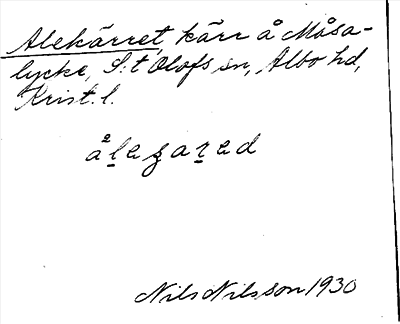 Alekärret, kärr å Måsa-
lycke, S:t Olofs sn, Albo hd,
Krist. l.
ålegared
Nils Nilsson 1930